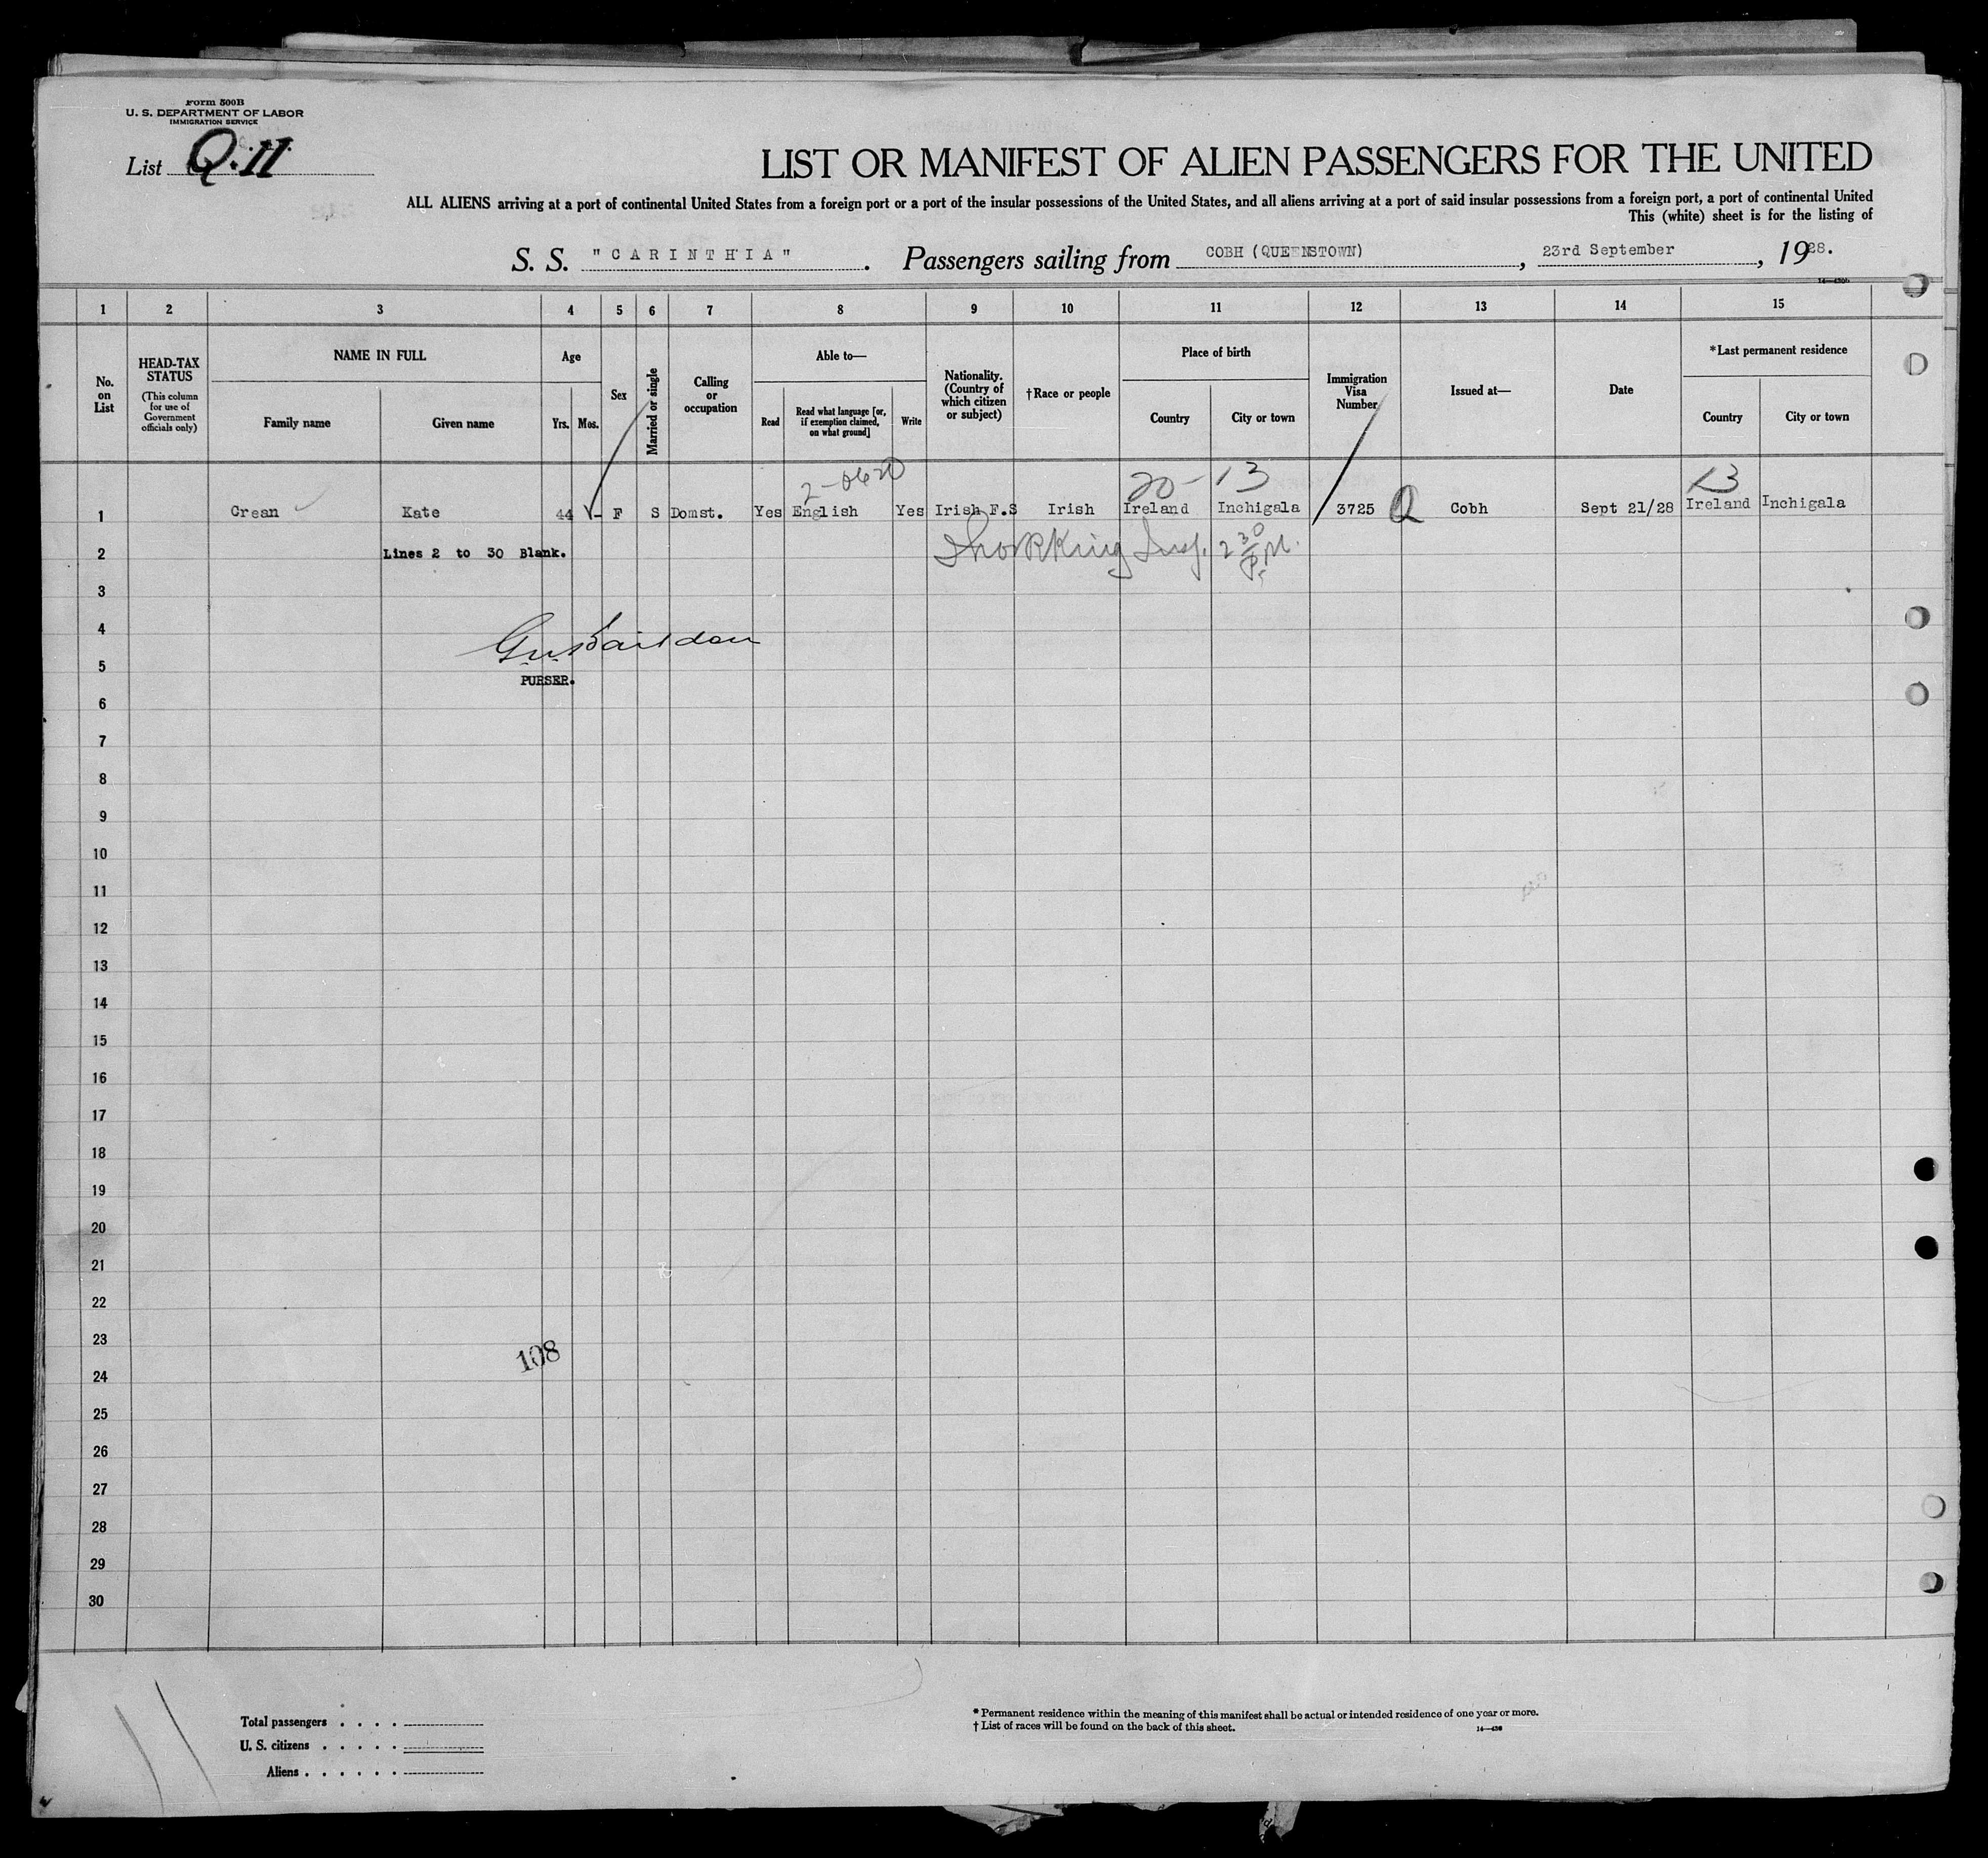 Form 500B
U. S. DEPARTMENT OF LABOR
IMMIGRATION SERVICE
List Q.11
LIST OR MANIFEST OF ALIEN PASSENGERS FOR THE UNITED
ALL ALIENS arriving at a port of continental United States from a foreign port or a port of the insular possessions of the United States, and all aliens arriving at a port of said insular possessions from a foreign port, a port of continental United
This (white) sheet is for the listing of
S. S. "CARINTHIA". Passengers sailing from COBH (QUEENSTOWN), 23rd September, 1928.
14—430b
1 2 3 4 5 6 7 8 9 10 11 12 13 14 15
No. on List
HEAD-TAX STATUS
(This column for use of Government officials only)
NAME IN FULL
Family name
Given name
Age
Yrs.
Mos.
Sex
Married or single
Calling or occupation
Able to—
Read
Read what language [or, if exemption claimed, on what ground]
Write
Nationality. (Country of which citizen or subject)
†Race or people
Place of birth
Country
City or town
Immigration Visa Number
Issued at—
Date
*Last permanent residence
Country
City or town
2-0620
20-13
13
1 Crean Kate 44 F S Domst. Yes English Yes Irish F.S Irish Ireland Inchigala 3725 Q Cobh Sept 21/28 Ireland Inchigala
2 Lines 2 to 30 Blank.
King Insp. 2 30 P.M.
3
4
5
PURSER.
6
7
8
9
10
11
12
13
14
15
16
17
18
19
20
21
22
23
108
24
25
26
27
28
29
30
Total passengers . . . .
U. S. citizens . . . . .
Aliens . . . . . .
*Permanent residence within the meaning of this manifest shall be actual or intended residence of one year or more.
†List of races will be found on the back of this sheet.
14—430